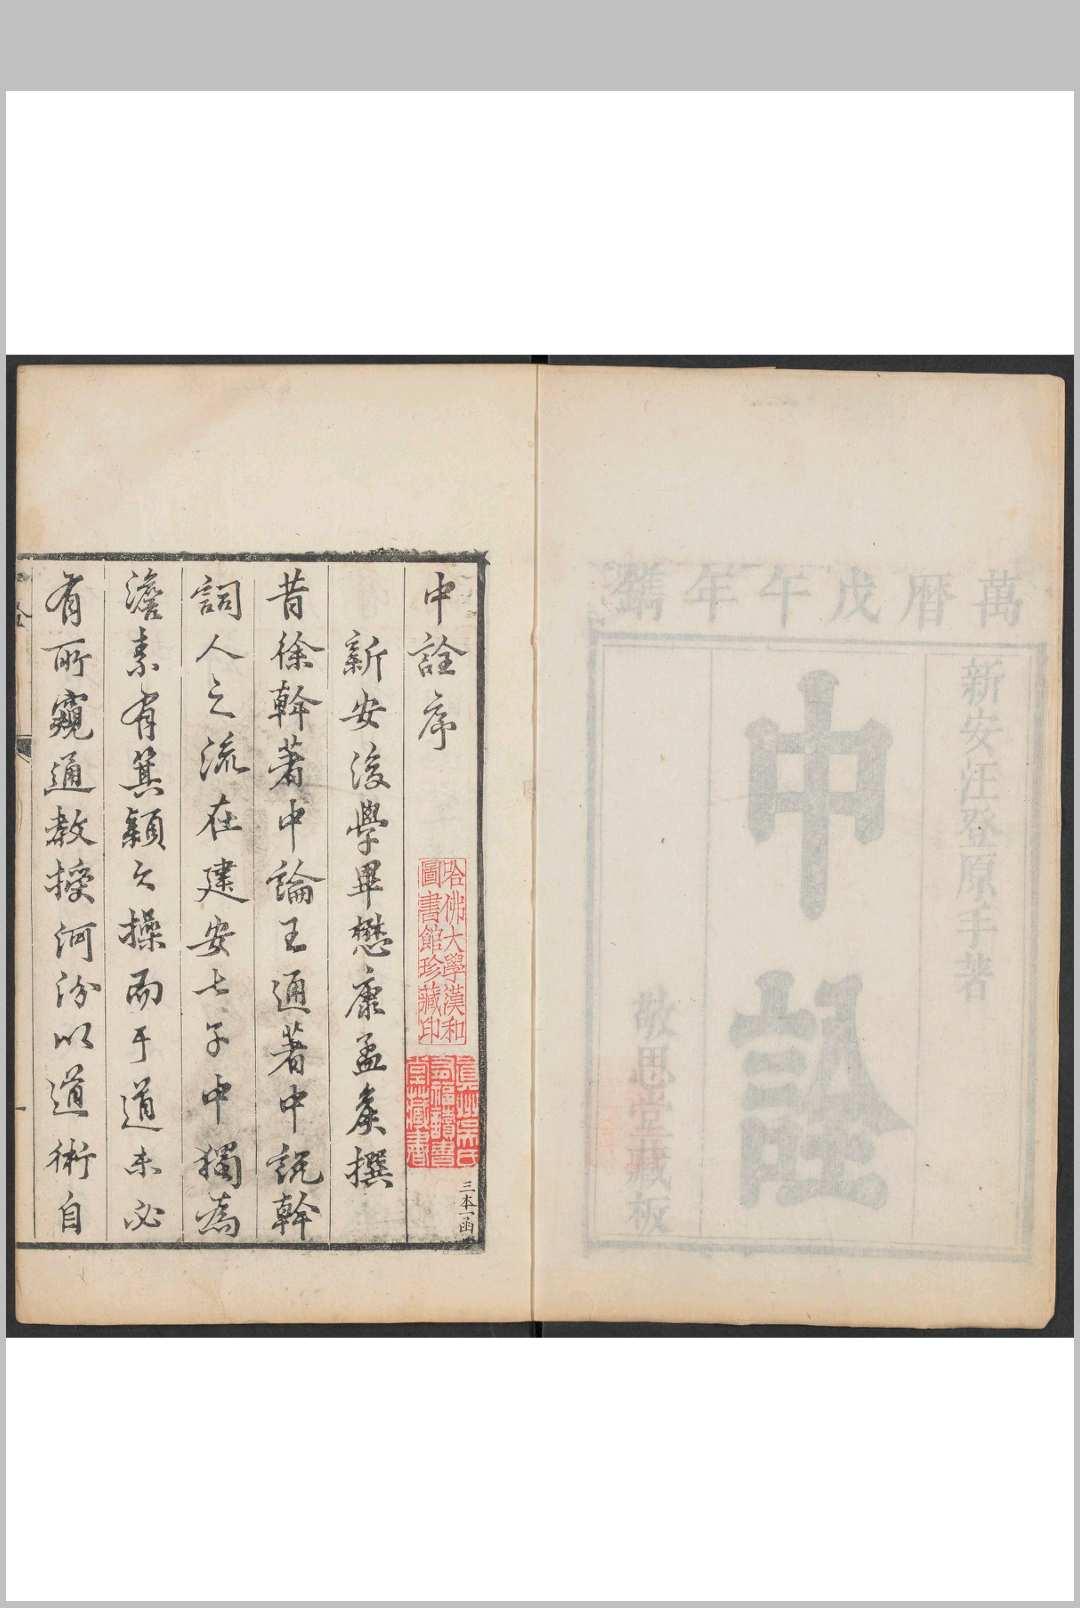 萬曆戊午年鐫
新安汪登原手著
中詮
敬思堂藏板
中詮序
哈佛大學漢和
圖書館珍藏印
真州吳氏
有福讀書
堂藏書
三本一函
新安後學畢懋康孟矦撰
昔徐幹著中論王通著中說幹
詞人之流在建安七子中獨為
澹素有箕穎之操而于道未必
有所窺通教授河汾以道術自